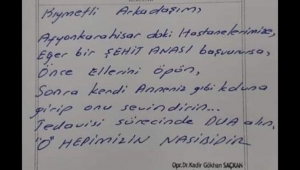 Kıymetli Arkadaşım,
Afyonkarahisar'daki Hastanelerimize,
Eğer bir ŞEHİT ANASI başvurursa,
Önce Ellerini Öpün,
Sonra kendi Anneniz gibi koluna
girip onu sevindirin...
Tedavisi sürecinde DUA alın,
"O" HEPİMİZİN NASİBİDİR.
Opr.Dr.Kadir Gökhan SAÇKAN